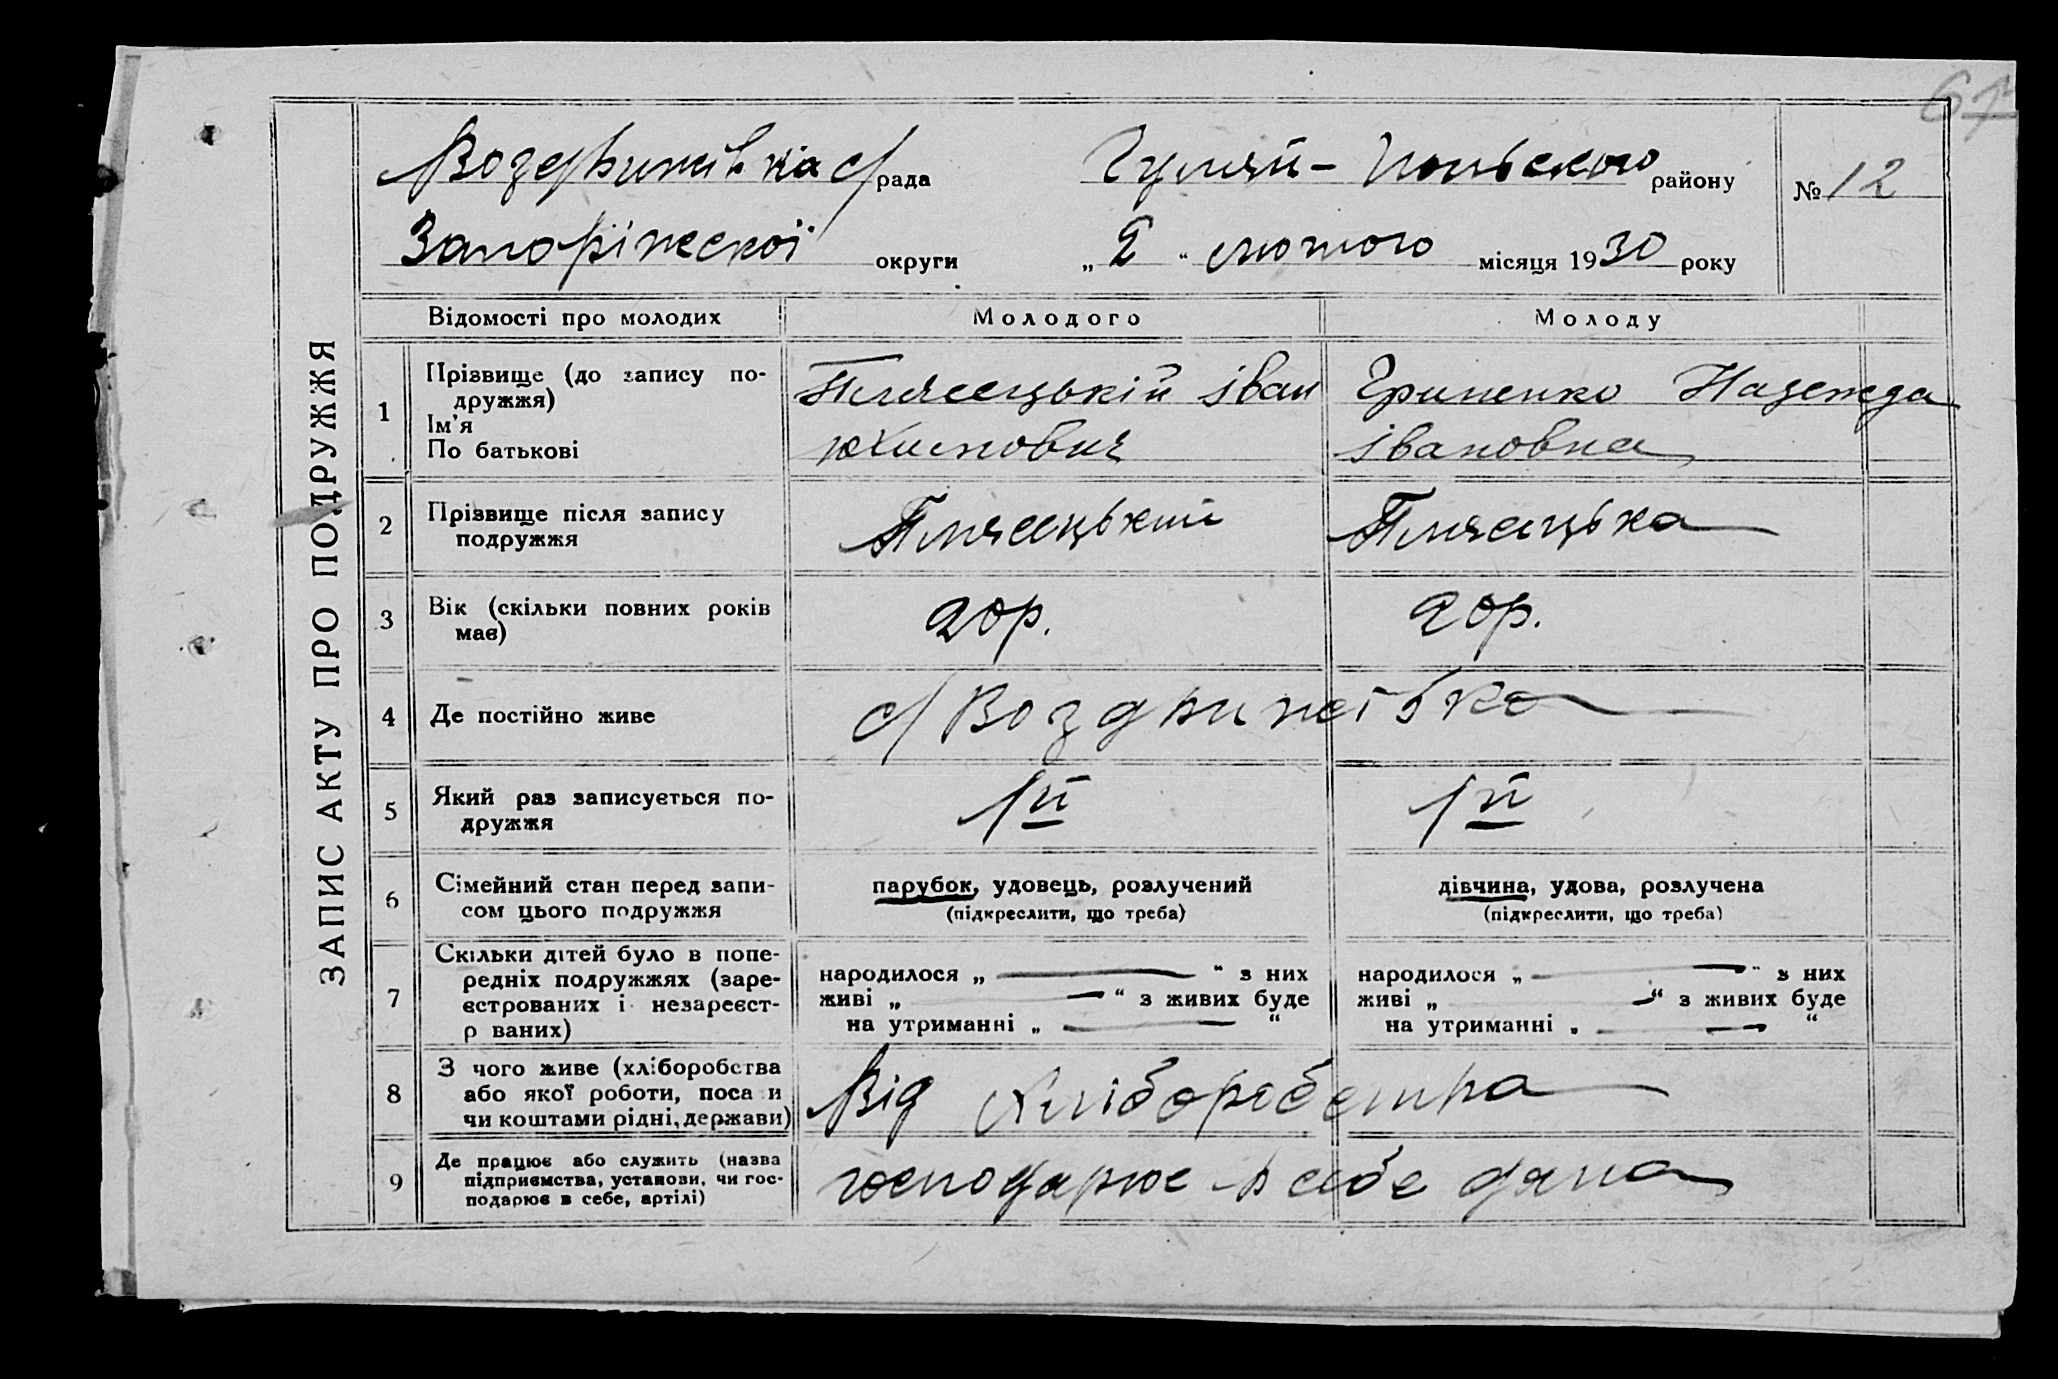 67
ЗАПИС АКТУ ПРО ПОДРУЖЖЯ
Воздвижівка с/рада Гуляй-Польского району № 12
Запоріжскої округи „2“ лютого місяця 1930 року
Відомості про молодих Молодого Молоду
1 Прізвище (до запису по-
дружжя)
Ім'я
По батькові
Плясецькій іван
юхимович
Гриненко Надежда
івановна
2 Прізвище після запису
подружжя
Плясецький Плясецька
3 Вік (скільки повних років
має)
20р. 20р.
4 Де постійно живе с/Воздвижівка
5 Який раз записується по-
дружжя
1й 1й
6 Сімейний стан перед запи-
сом цього подружжя
парубок, удовець, розлучений
(підкреслити, що треба)
дівчина, удова, розлучена
(підкреслити, що треба)
7 Скільки дітей було в попе-
редніх подружжях (заре-
єстрованих і незареєст-
р ваних)
народилося „ — “ з них
живі „ — “ з живих буде
на утриманні „ — “
народилося „ — “ з них
живі „ — “ з живих буде
на утриманні „ — “
8 З чого живе (хліборобства
або якої роботи, поса и
чи коштами рідні, держави)
Від хліборобства
9 Де працює або служить (назва
підприємства, установи, чи гос-
подарює в себе, артілі)
господарює в себе дома